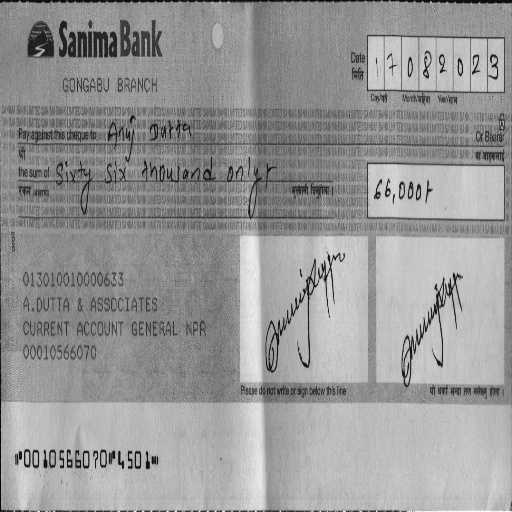 Sanima Bank
GONGABU BRANCH
Date
मिति
17082023
Day/गते Month/महिना Year/साल
Pay against this cheque to Anuj Dutta Or Bearer
श्री वा वाहकलाई
the sum of Sixty Six thousand only/-
रकम (अक्षरमा)
66,000/-
013010010000633
A.DUTTA & ASSOCIATES
CURRENT ACCOUNT GENERAL NPR
00010566070
Please do not write or sign below this line
"0010566070" 4501"